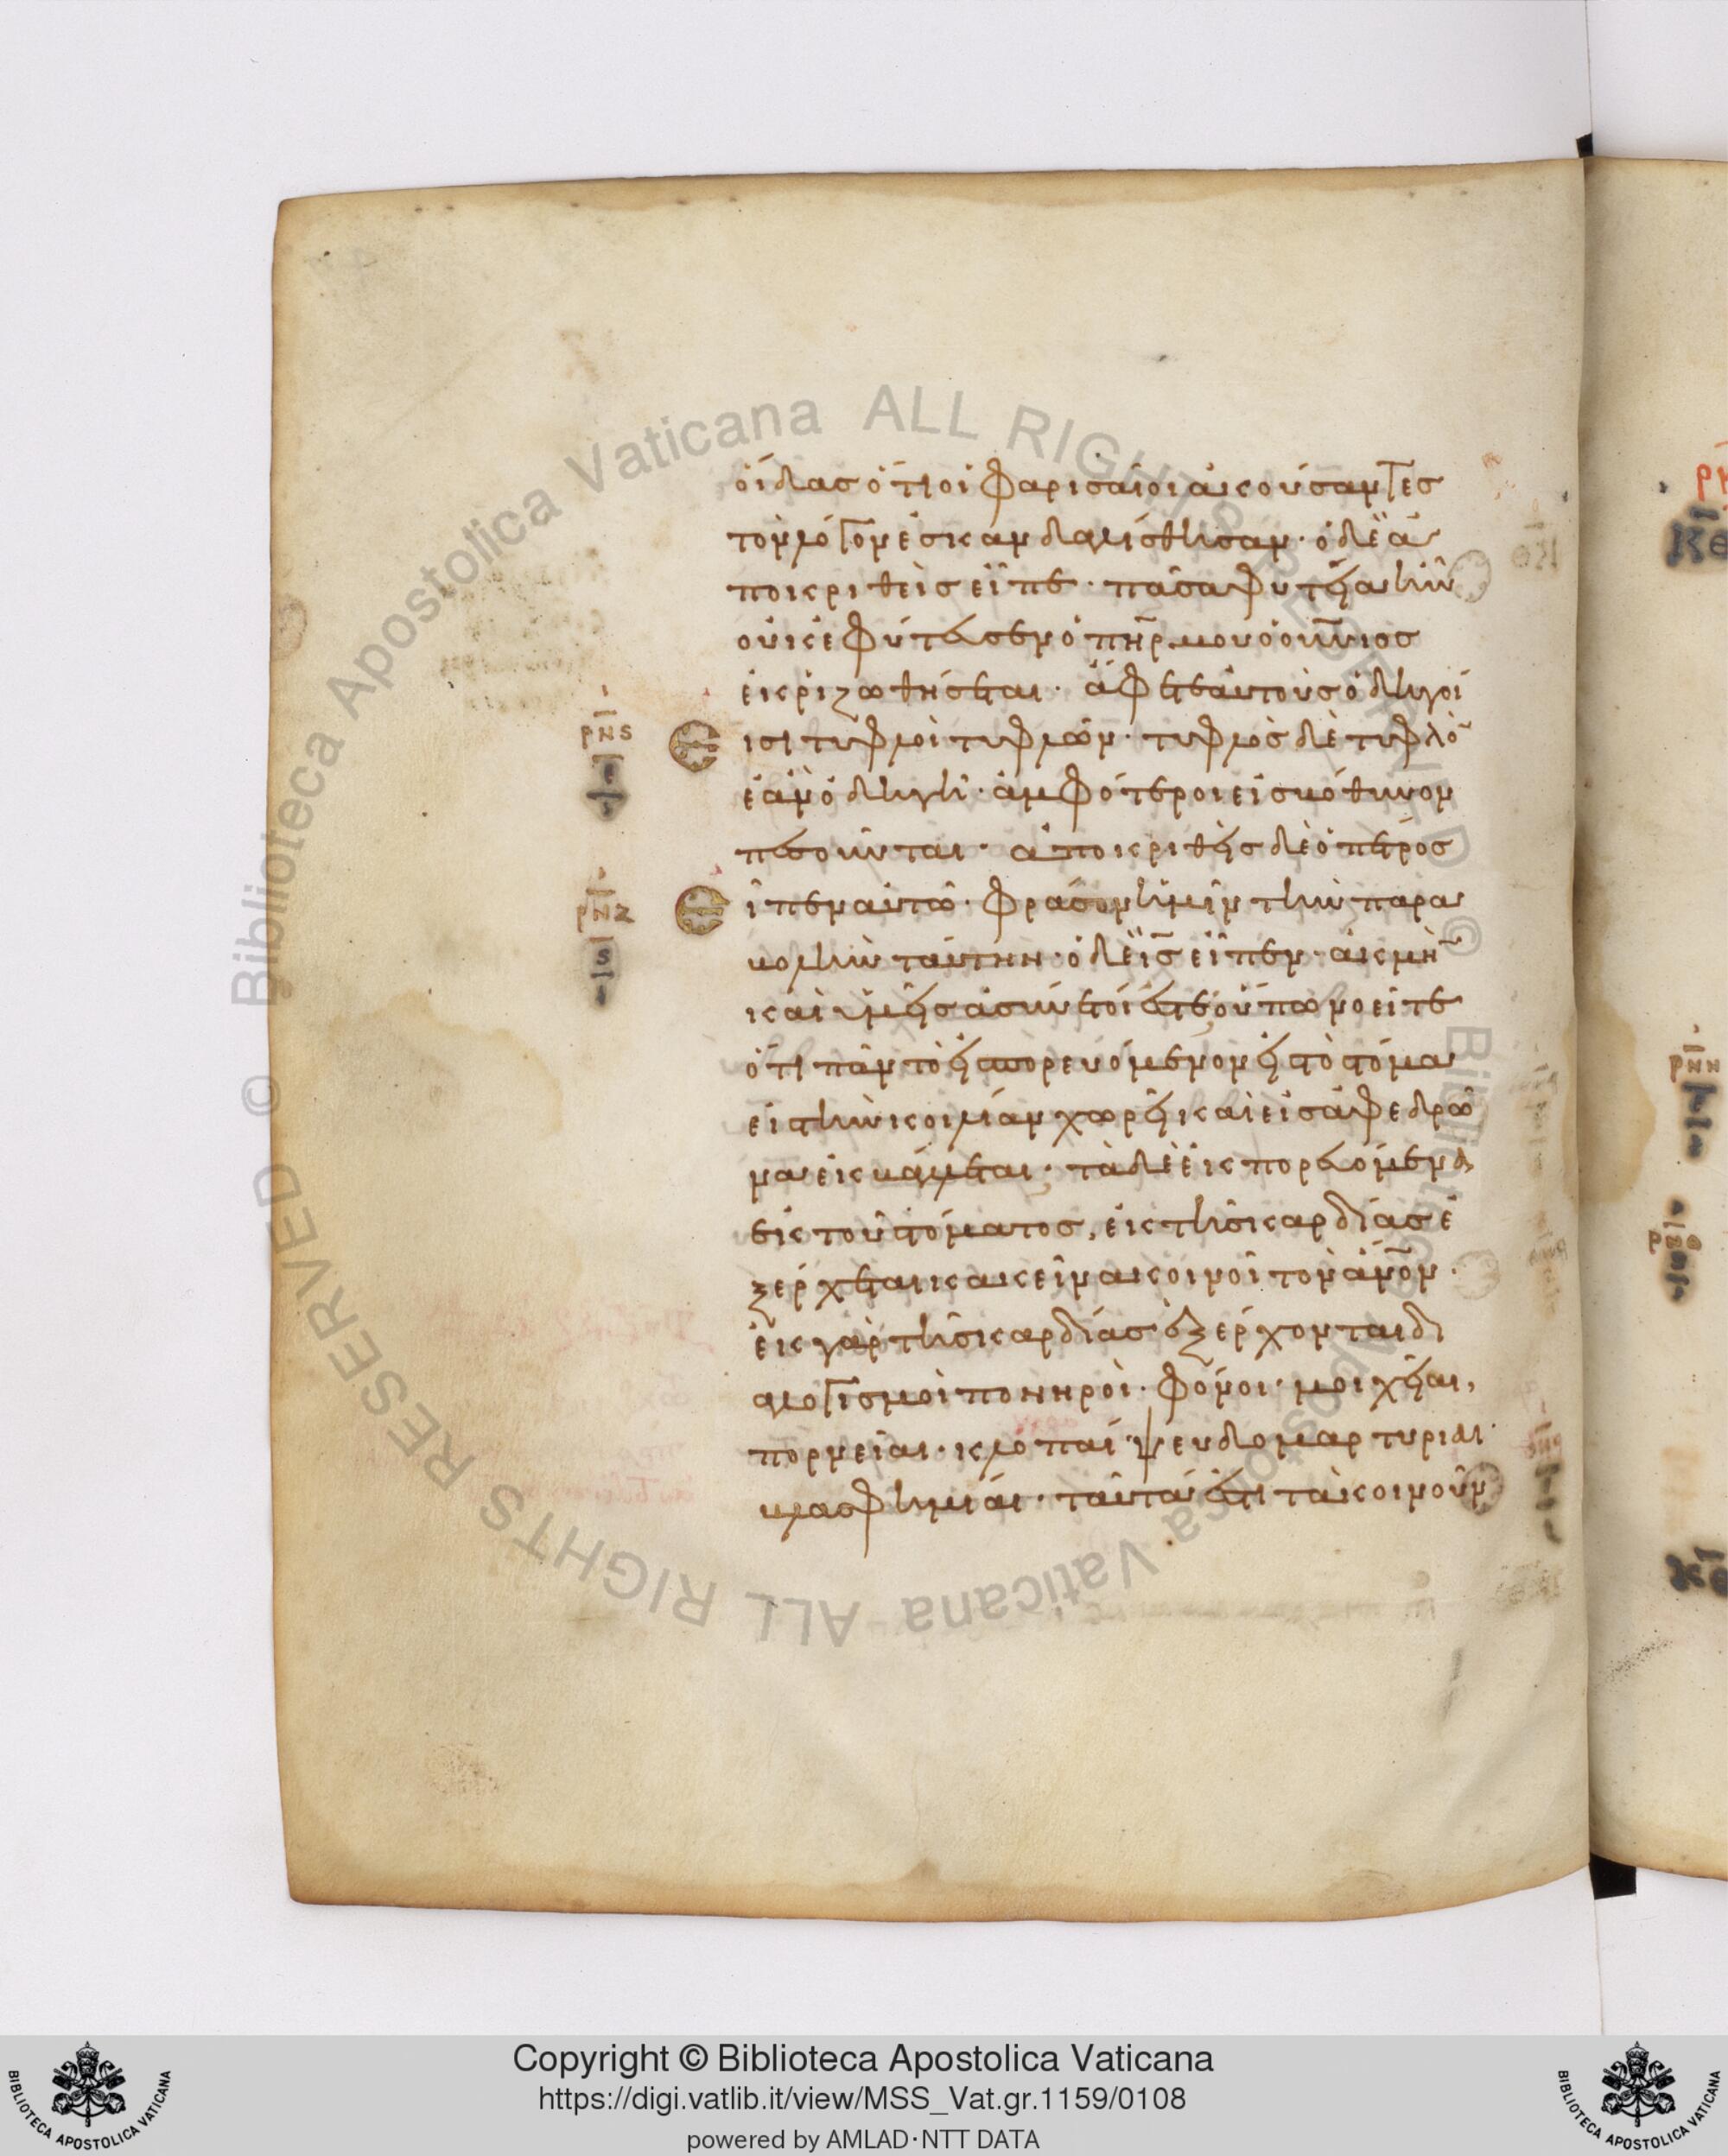 οἶδας ὅτι οἱ φαρισαῖοι ἀκούσαντες
τὸν λόγον ἐσκανδαλίσθησαν· ὁ δὲ ἀ
ποκριθεὶς εἶπε· πᾶσα φυτεία ἣν
οὐκ ἐφύτευσεν ὁ πη̅ρ μου ὁ οὐ̅νιος
ἐκριζωθήσεται· ἄφετε αὐτοὺς ὁδηγοί
ρ̅ν̅ς̅
Ε
ισι τυφλοὶ τυφλῶν· τυφλὸς δὲ τυφλὸ̅
ἐὰν ὁδηγῆ· ἀμφότεροι εἰς βόθυνον
πεσοῦνται· ἀποκριθεὶς δὲ ὁ πέτρος
ρ̅ν̅ζ̅
ς̅
Ε
ἶπεν αὐτῶ· φράσον ἡμῖν τὴν παρα
βολὴν ταύτην· ὁ δὲ ι̅ς̅ εἶπεν· ἀκμὴ̅
καὶ ὑμεῖς ἀσύνετοί ἐστε οὔπω νοεῖτε
ὅτι πᾶν τὸ εἰσπορευόμενον εἰς τὸ στόμα
εἰς τὴν κοιλίαν χωρεῖ καὶ εἰς ἀφεδρῶ
να ἐκβάλλεται· τὰ δὲ ἐκπορευόμενα
ἐκ τοῦ στόματος, ἐκ τῆς καρδίας ἐ
ξέρχεται κἀκεῖνα κοινοῖ τὸν α̅ν̅ο̅ν·
ἐκ γὰρ τῆς καρδίας ἐξέρχονται δι
αλογισμοὶ πονηροὶ· φόνοι· μοιχεῖαι,
πορνεῖαι· κλοπαί ψευδομαρτυριαι·
βλασφημίαι· ταῦτά ἐστι τὰ κοινοῦν
Copyright © Biblioteca Apostolica Vaticana
https://digi.vatlib.it/view/MSS_Vat.gr.1159/0108
powered by AMLAD·NTT DATA
BIBLIOTECA APOSTOLICA VATICANA
BIBLIOTECA APOSTOLICA VATICANA
© Biblioteca Apostolica Vaticana ALL RIGHTS RESERVED © Biblioteca Apostolica Vaticana ALL RIGHTS RESERVED